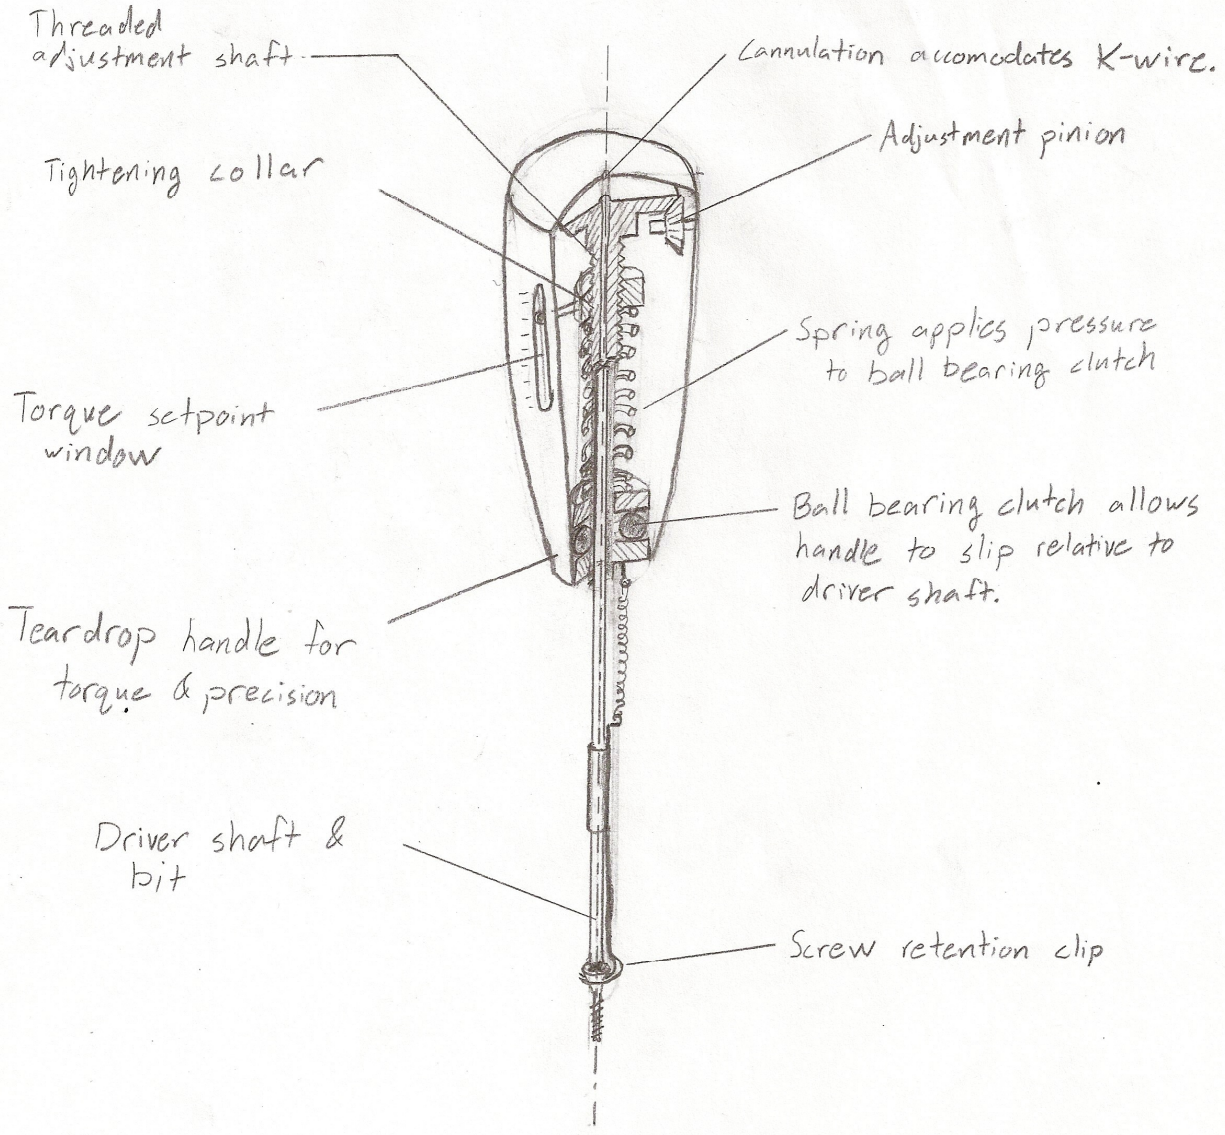 Threaded
adjustment shaft
Cannulation accomodates K-wire.
Adjustment pinion
Tightening collar
Spring applies pressure
to ball bearing clutch
Torque setpoint
window
Ball bearing clutch allows
handle to slip relative to
driver shaft.
Teardrop handle for
torque & precision
Driver shaft &
bit
Screw retention clip